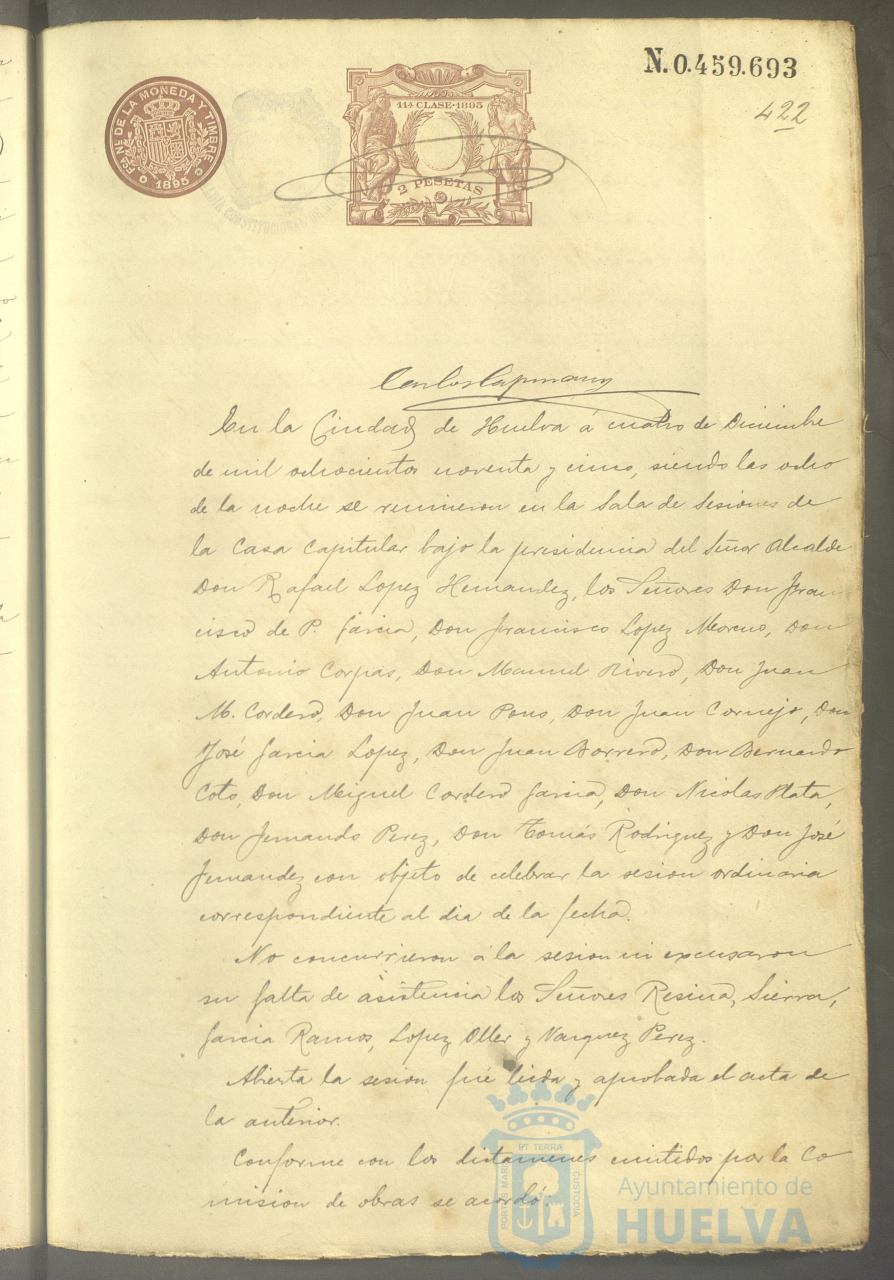 N. 0.459.693
422
FCA. NL. DE LA MONEDA Y TIMBRE
1895
11ª CLASE·1895
2 PESETAS
CONSTITUCIONAL DE
Carlos Capmany
En la Ciudad de Huelva á cuatro de Diciembre
de mil ochocientos noventa y cinco, siendo las ocho
de la noche se reunieron en la Sala de Sesiones de
la Casa Capitular bajo la presidencia del Señor Alcalde
Don Rafael Lopez Hernandez, los Señores Don Fran
cisco de P. Garcia, Don Francisco Lopez Moreno, Don
Antonio Corpas, Don Manuel Rivero, Don Juan
M. Cordero, Don Juan Pons, Don Juan Cornejo, Don
José Garcia Lopez, Don Juan Borrero, Don Bernardo
Coto, Don Miguel Cordero Garcia, Don Nicolas Plata,
Don Fernando Perez, Don Tomás Rodriguez y Don José
Fernandez con objeto de celebrar la sesion ordinaria
correspondiente al dia de la fecha.
No concurrieron á la sesion ni excusaron
su falta de asistencia los Señores Resina, Sierra,
Garcia Ramos, Lopez Oller y Vazquez Perez.
Abierta la sesion fué leida y aprobada el acta de
la anterior.
Conforme con los dictamenes emitidos por la Co
mision de obras se acordó:
PORTUS MARIS
ET TERRÆ
CUSTODIA
Ayuntamiento de
HUELVA